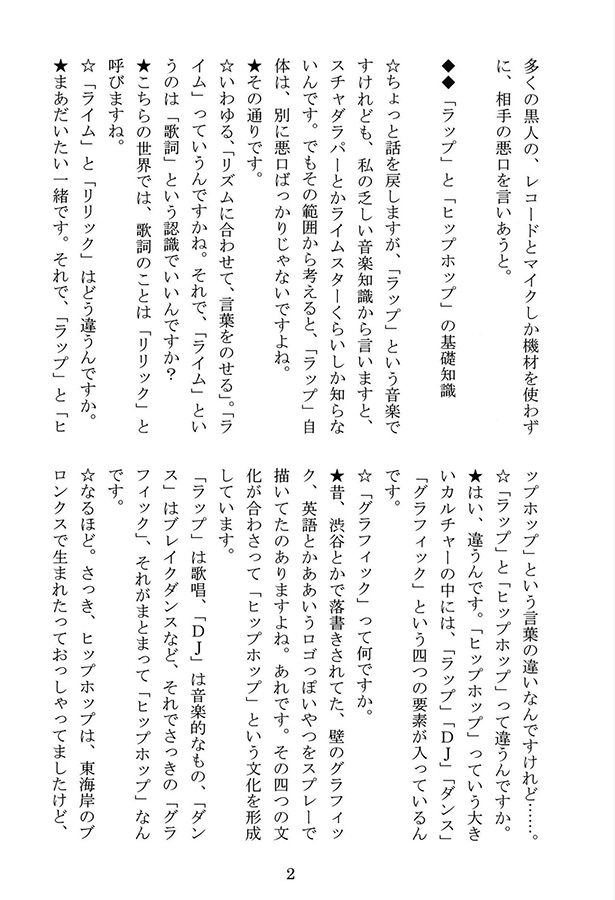 多くの黒人の、レコードとマイクしか機材を使わず
に、相手の悪口を言いあうと。
◆◆「ラップ」と「ヒップホップ」の基礎知識
☆ちょっと話を戻しますが、「ラップ」という音楽で
すけれども、私の乏しい音楽知識から言いますと、
スチャダラパーとかライムスターくらいしか知らな
いんです。でもその範囲から考えると、「ラップ」自
体は、別に悪口ばっかりじゃないですよね。
★その通りです。
☆いわゆる、「リズムに合わせて、言葉をのせる」。「ラ
イム」っていうんですかね。それで、「ライム」とい
うのは「歌詞」という認識でいいんですか？
★こちらの世界では、歌詞のことは「リリック」と
呼びますね。
☆「ライム」と「リリック」はどう違うんですか。
★まあだいたい一緒です。それで、「ラップ」と「ヒ
ップホップ」という言葉の違いなんですけれど……。
☆「ラップ」と「ヒップホップ」って違うんですか。
★はい、違うんです。「ヒップホップ」っていう大き
いカルチャーの中には、「ラップ」「ＤＪ」「ダンス」
「グラフィック」という四つの要素が入っているん
です。
☆「グラフィック」って何ですか。
★昔、渋谷とかで落書きされてた、壁のグラフィッ
ク、英語とかああいうロゴっぽいやつをスプレーで
描いてたのありますよね。あれです。その四つの文
化が合わさって「ヒップホップ」という文化を形成
しています。
「ラップ」は歌唱、「ＤＪ」は音楽的なもの、「ダン
ス」はブレイクダンスなど、それでさっきの「グラ
フィック」、それがまとまって「ヒップホップ」なん
です。
☆なるほど。さっき、ヒップホップは、東海岸のブ
ロンクスで生まれたっておっしゃってましたけど、
2